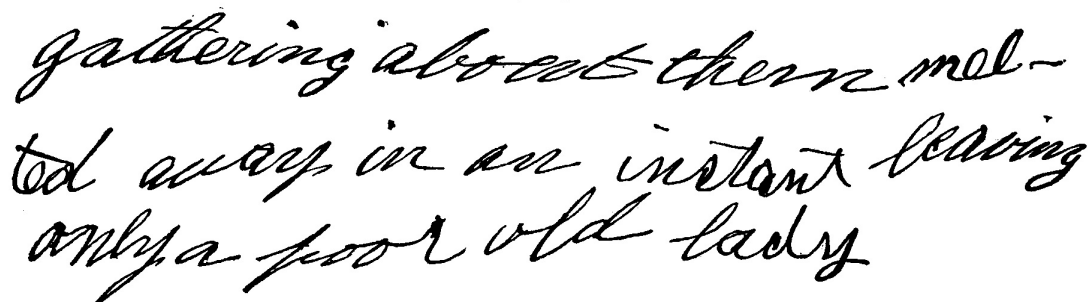 gathering about them mel-
ted away in an instant leaving
only a poor old lady